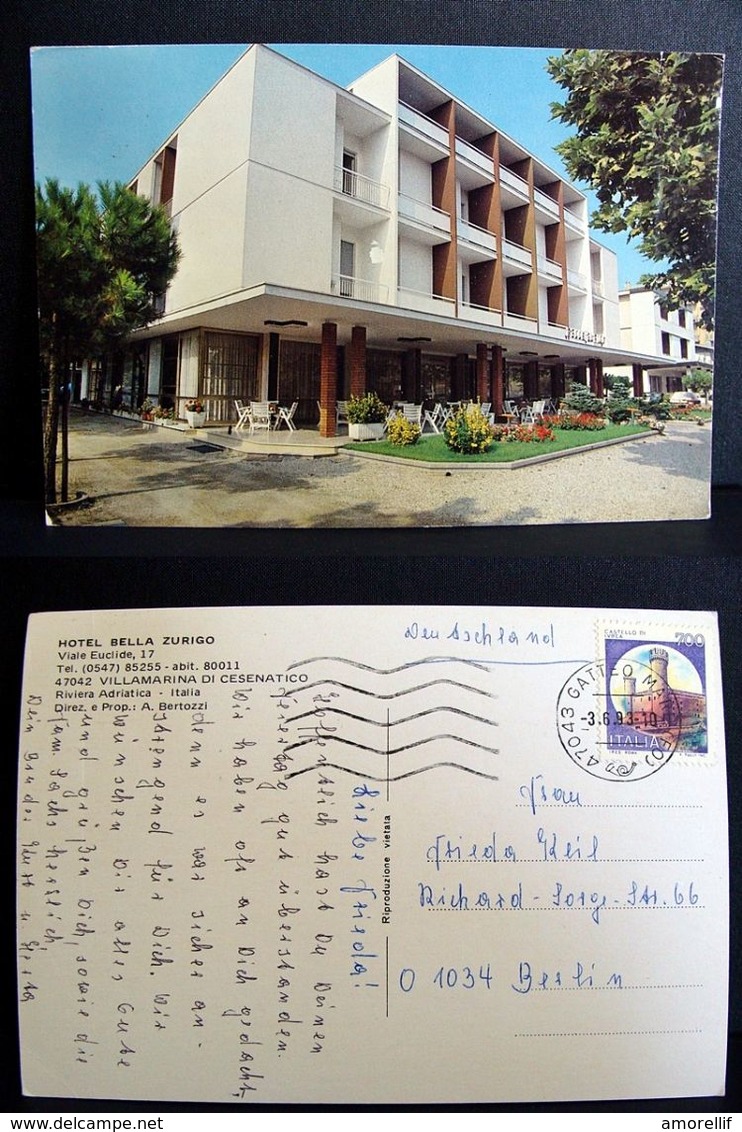 HOTEL BELLA ZURIGO
Viale Euclide, 17
Tel. (0547) 85255 - abit. 80011
47042 VILLAMARINA DI CESENATICO
Riviera Adriatica - Italia
Direz. e Prop.: A. Bertozzi
Riproduzione vietata
Deutschland
CASTELLO DI
IVREA
700
ITALIA
47043 GATTEO MARE (FO)
-3.6.93-10
Frau
Frieda Keil
Richard-Sorge-Str. 66
O 1034 Berlin
Liebe Frieda!
Hoffentlich hast Du Deinen
Feiertag gut überstanden.
Wir haben oft an Dich gedacht,
denn es war sicher an-
strengend für Dich. Wir
wünschen Dir alles Gute
und grüßen Dich, sowie die
Fam. Sachs herzlich,
Dein Bruder Kurt u. Herta
amorellif